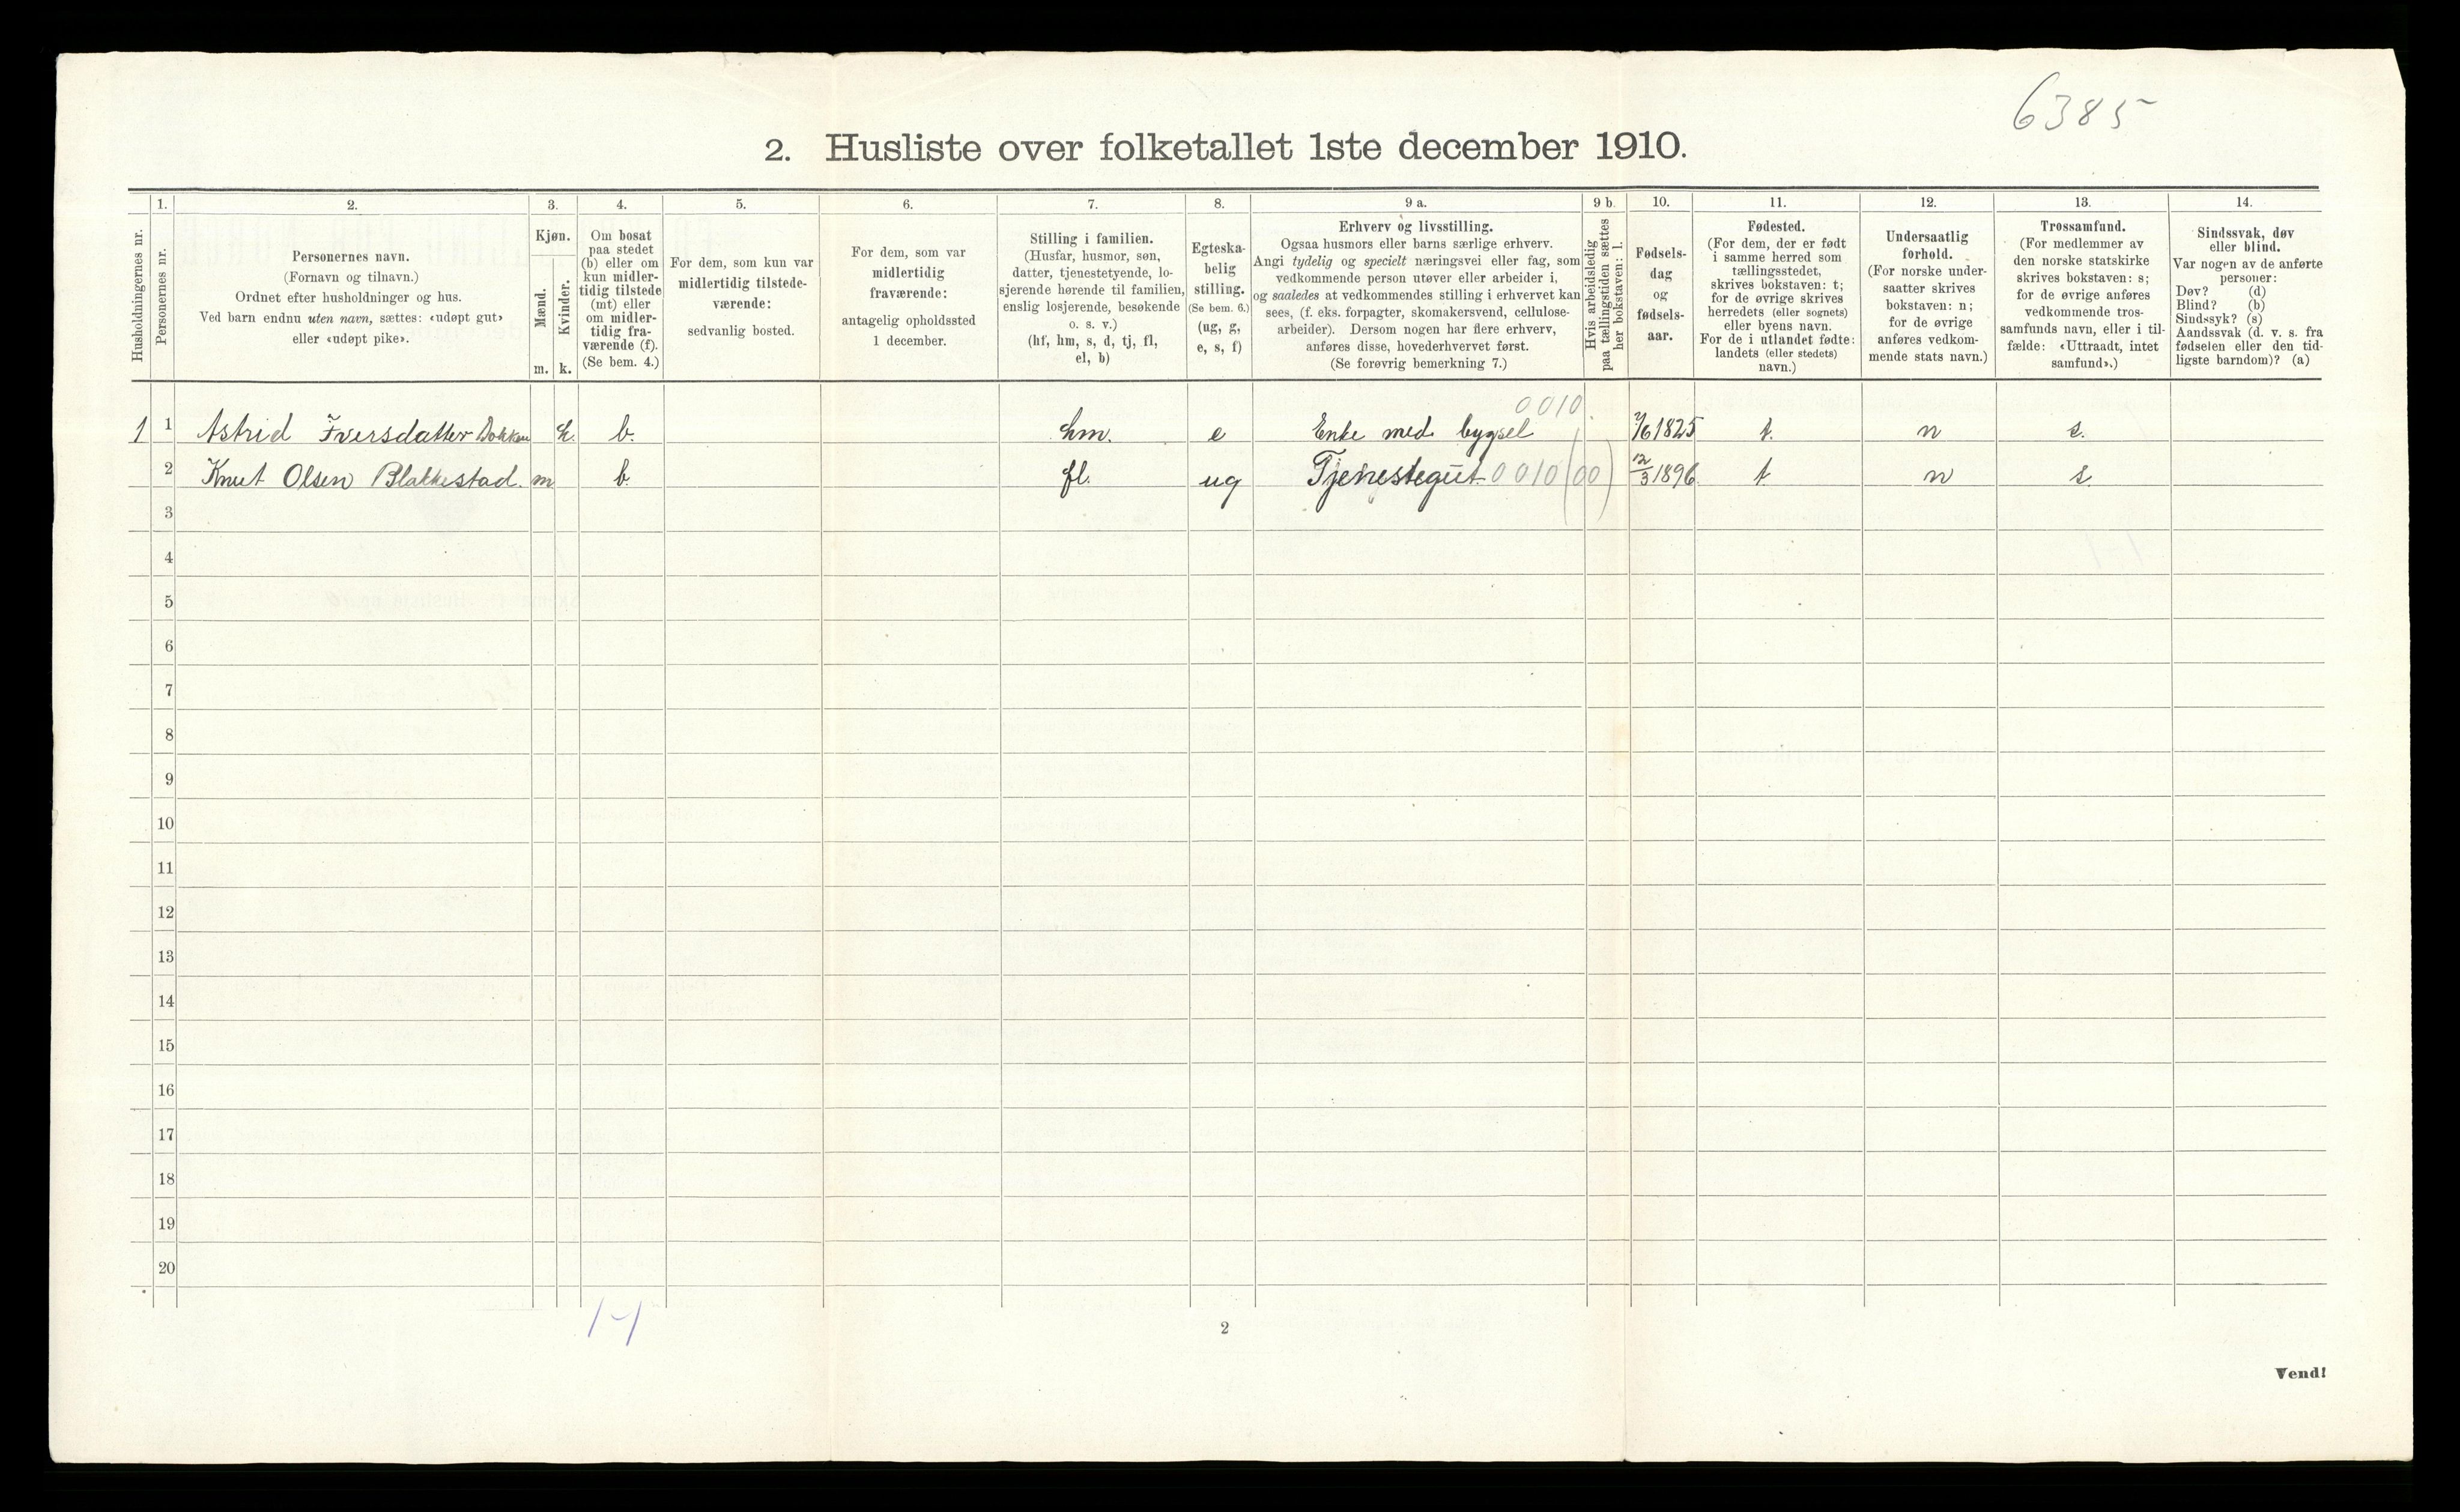 6385
2. Husliste over folketallet 1ste december 1910.
Husholdningernes nr.
1.
Personernes nr.
2.
Personernes navn.
(Fornavn og tilnavn.)
Ordnet efter husholdninger og hus.
Ved barn endnu uten navn, sættes: «udøpt gut»
eller «udøpt pike».
3.
Kjøn.
Mænd.
Kvinder.
m. k.
4.
Om bosat
paa stedet
(b) eller om
kun midler-
tidig tilstede
(mt) eller
om midler-
tidig fra-
værende (f).
(Se bem. 4.)
5.
For dem, som kun var
midlertidig tilstede-
værende:
sedvanlig bosted.
6.
For dem, som var
midlertidig
fraværende:
antagelig opholdssted
1 december.
7.
Stilling i familien.
(Husfar, husmor, søn,
datter, tjenestetyende, lo-
sjerende hørende til familien,
enslig losjerende, besøkende
o. s. v.)
(hf, hm, s, d, tj, fl,
el, b)
8.
Egteska-
belig
stilling.
(Se bem. 6.)
(ug, g,
e, s, f)
9 a.
Erhverv og livsstilling.
Ogsaa husmors eller barns særlige erhverv.
Angi tydelig og specielt næringsvei eller fag, som
vedkommende person utøver eller arbeider i,
og saaledes at vedkommendes stilling i erhvervet kan
sees, (f. eks. forpagter, skomakersvend, cellulose-
arbeider). Dersom nogen har flere erhverv,
anføres disse, hovederhvervet først.
(Se forøvrig bemerkning 7.)
9 b.
Hvis arbeidsledig
paa tællingstiden sættes
her bokstaven: l.
10.
Fødsels-
dag
og
fødsels-
aar.
11.
Fødested.
(For dem, der er født
i samme herred som
tællingsstedet,
skrives bokstaven: t;
for de øvrige skrives
herredets (eller sognets)
eller byens navn.
For de i utlandet fødte:
landets (eller stedets)
navn.)
12.
Undersaatlig
forhold.
(For norske under-
saatter skrives
bokstaven: n;
for de øvrige
anføres vedkom-
mende stats navn.)
13.
Trossamfund.
(For medlemmer av
den norske statskirke
skrives bokstaven: s;
for de øvrige anføres
vedkommende tros-
samfunds navn, eller i til-
fælde: «Uttraadt, intet
samfund».)
14.
Sindssvak, døv
eller blind.
Var nogen av de anførte
personer:
Døv? (d)
Blind? (b)
Sindssyk? (s)
Aandssvak (d. v. s. fra
fødselen eller den tid-
ligste barndom)? (a)
0010
1 1 Astrid Iversdatter Dokken k. b. hm. e Enke med bygsel 7/6 1825 t. n s.
2 Knut Olsen Blakkestad. m b. fl. ug Tjenestegut 0010 (00) 12/3 1896. t n s.
3
4
5
6
7
8
9
10
11
12
13
14
15
16
17
18
19
20
2
Vend!